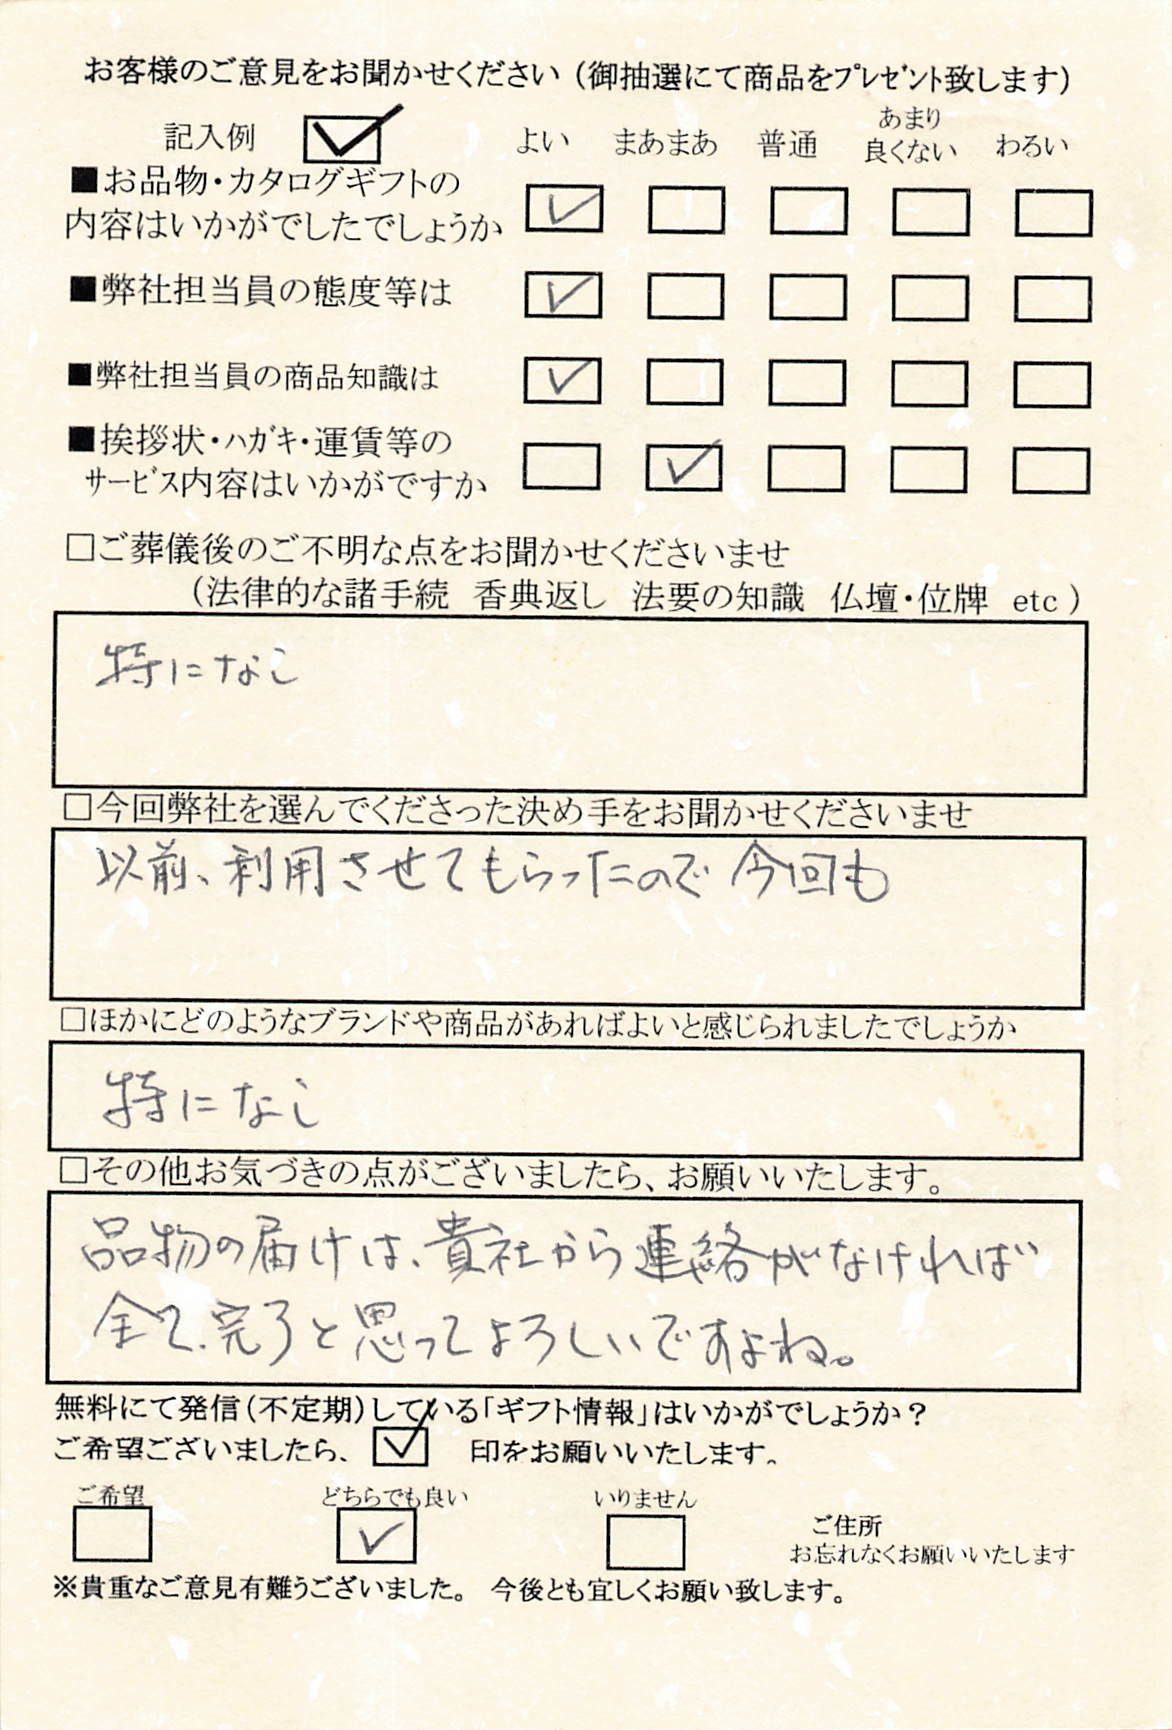 お客様のご意見をお聞かせください（御抽選にて商品をﾌﾟﾚｾﾞﾝﾄ致します）
記入例 ☑ よい まあまあ 普通 あまり良くない わるい
■お品物・カタログギフトの
内容はいかがでしたでしょうか ☑ □ □ □ □
■弊社担当員の態度等は ☑ □ □ □ □
■弊社担当員の商品知識は ☑ □ □ □ □
■挨拶状・ﾊｶﾞｷ・運賃等の
ｻｰﾋﾞｽ内容はいかがですか □ ☑ □ □ □
□ご葬儀後のご不明な点をお聞かせくださいませ
（法律的な諸手続 香典返し 法要の知識 仏壇・位牌 etc ）
特になし
□今回弊社を選んでくださった決め手をお聞かせくださいませ
以前、利用させてもらったので今回も
□ほかにどのようなブランドや商品があればよいと感じられましたでしょうか
特になし
□その他お気づきの点がございましたら、お願いいたします。
品物の届けは、貴社から連絡がなければ
全て、完了と思ってよろしいですよね。
無料にて発信（不定期）している「ギフト情報」はいかがでしょうか？
ご希望ございましたら、☑ 印をお願いいたします。
ご希望 どちらでも良い いりません
□ ☑ □ ご住所
お忘れなくお願いいたします
※貴重なご意見有難うございました。 今後とも宜しくお願い致します。